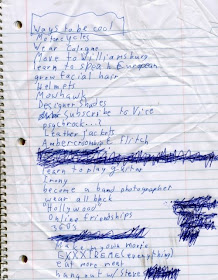 Ways to be cool
Motorcycles
Wear Cologne
Move to Williamsburg
learn to speak European
grow facial hair
Helmets
Mowhawk
Designer Shades
Subscribe to Vice
psychrock...?
Leather jackets
Ambercrombie & Flitch
learn to play guitar
Irony
become a band photographer
wear all black
Hollywood
Online friendships
360s
Make
your movie
EXXXTREME (everything)
Eat more meat
hang out w/ Steve